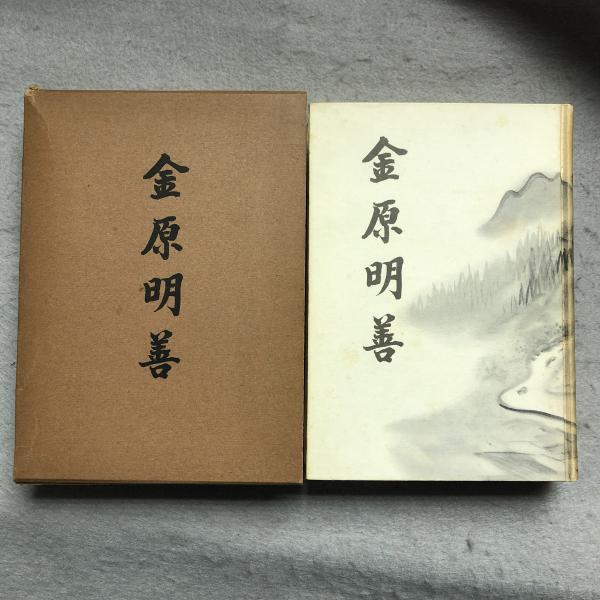 金原明善
金原明善